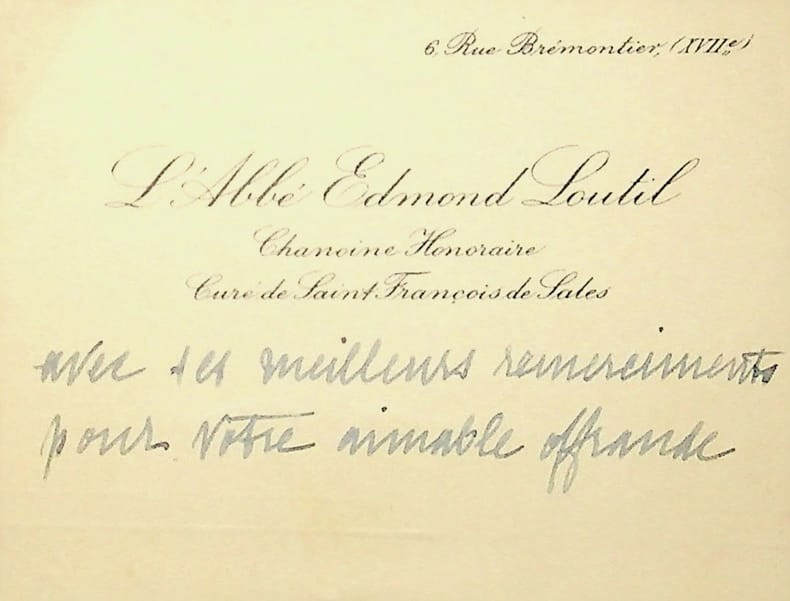 6, Rue Brémontier, (XVIIe)
L'Abbé Edmond Loutil
Chanoine Honoraire
Curé de Saint François de Sales
avec ses meilleurs remerciments
pour votre aimable offrande